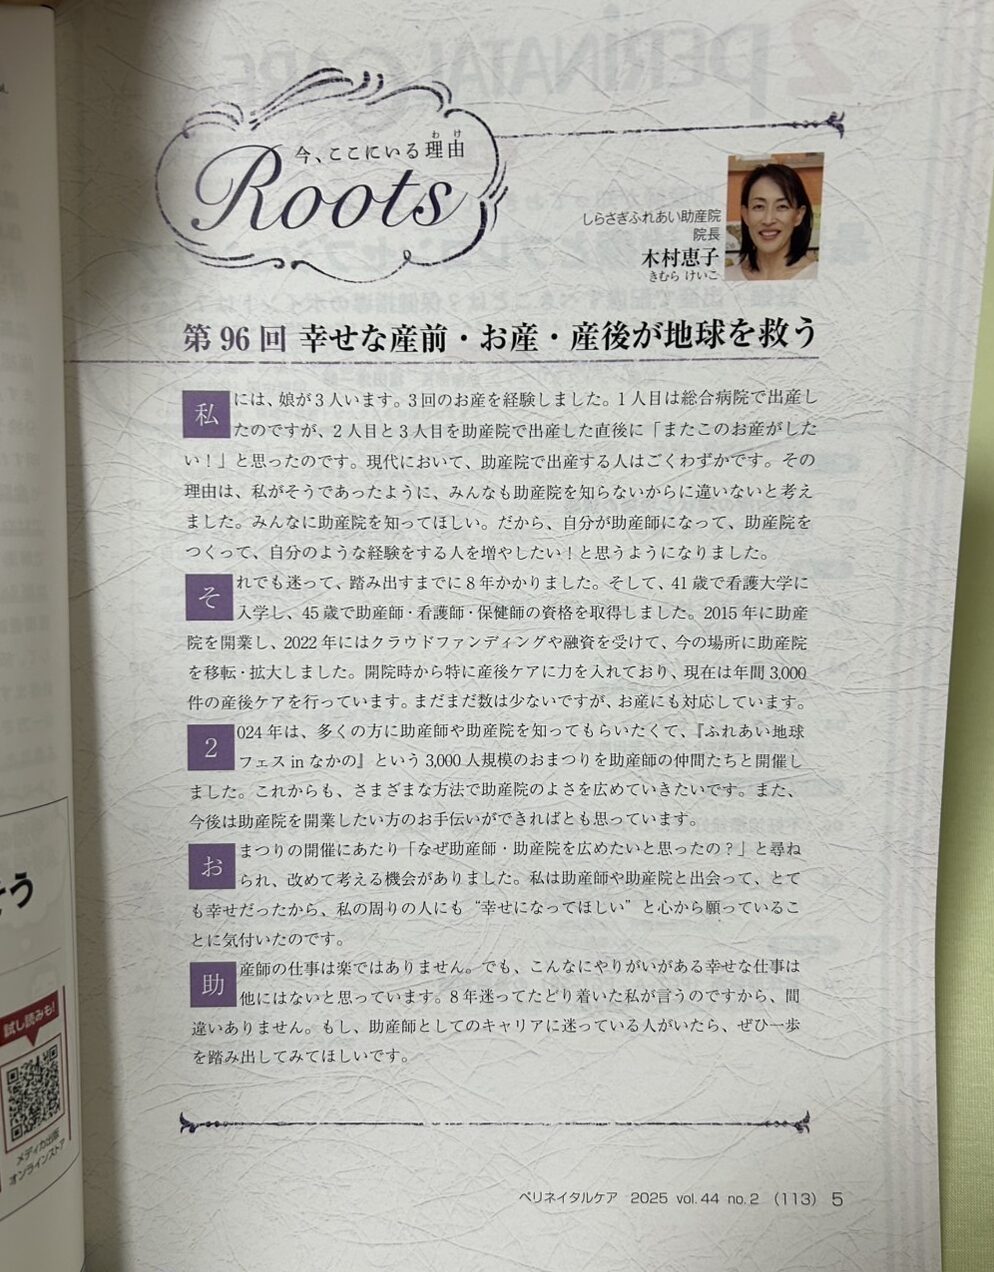 今、ここにいる理由
わけ
Roots
しらさぎふれあい助産院
院長
木村恵子
きむら けいこ
第96回 幸せな産前・お産・産後が地球を救う
私には、娘が3人います。3回のお産を経験しました。1人目は総合病院で出産し
たのですが、2人目と3人目を助産院で出産した直後に「またこのお産がした
い！」と思ったのです。現代において、助産院で出産する人はごくわずかです。その
理由は、私がそうであったように、みんなも助産院を知らないからに違いないと考え
ました。みんなに助産院を知ってほしい。だから、自分が助産師になって、助産院を
つくって、自分のような経験をする人を増やしたい！と思うようになりました。
それでも迷って、踏み出すまでに8年かかりました。そして、41歳で看護大学に
入学し、45歳で助産師・看護師・保健師の資格を取得しました。2015年に助産
院を開業し、2022年にはクラウドファンディングや融資を受けて、今の場所に助産院
を移転・拡大しました。開院時から特に産後ケアに力を入れており、現在は年間3,000
件の産後ケアを行っています。まだまだ数は少ないですが、お産にも対応しています。
2024年は、多くの方に助産師や助産院を知ってもらいたくて、『ふれあい地球
フェス in なかの』という3,000人規模のおまつりを助産師の仲間たちと開催し
ました。これからも、さまざまな方法で助産院のよさを広めていきたいです。また、
今後は助産院を開業したい方のお手伝いができればとも思っています。
おまつりの開催にあたり「なぜ助産師・助産院を広めたいと思ったの？」と尋ね
られ、改めて考える機会がありました。私は助産師や助産院と出会って、とて
も幸せだったから、私の周りの人にも“幸せになってほしい”と心から願っているこ
とに気付いたのです。
助産師の仕事は楽ではありません。でも、こんなにやりがいがある幸せな仕事は
他にはないと思っています。8年迷ってたどり着いた私が言うのですから、間
違いありません。もし、助産師としてのキャリアに迷っている人がいたら、ぜひ一歩
を踏み出してみてほしいです。
試し読みも!
メディカ出版
オンラインストア
ペリネイタルケア 2025 vol.44 no.2 (113) 5